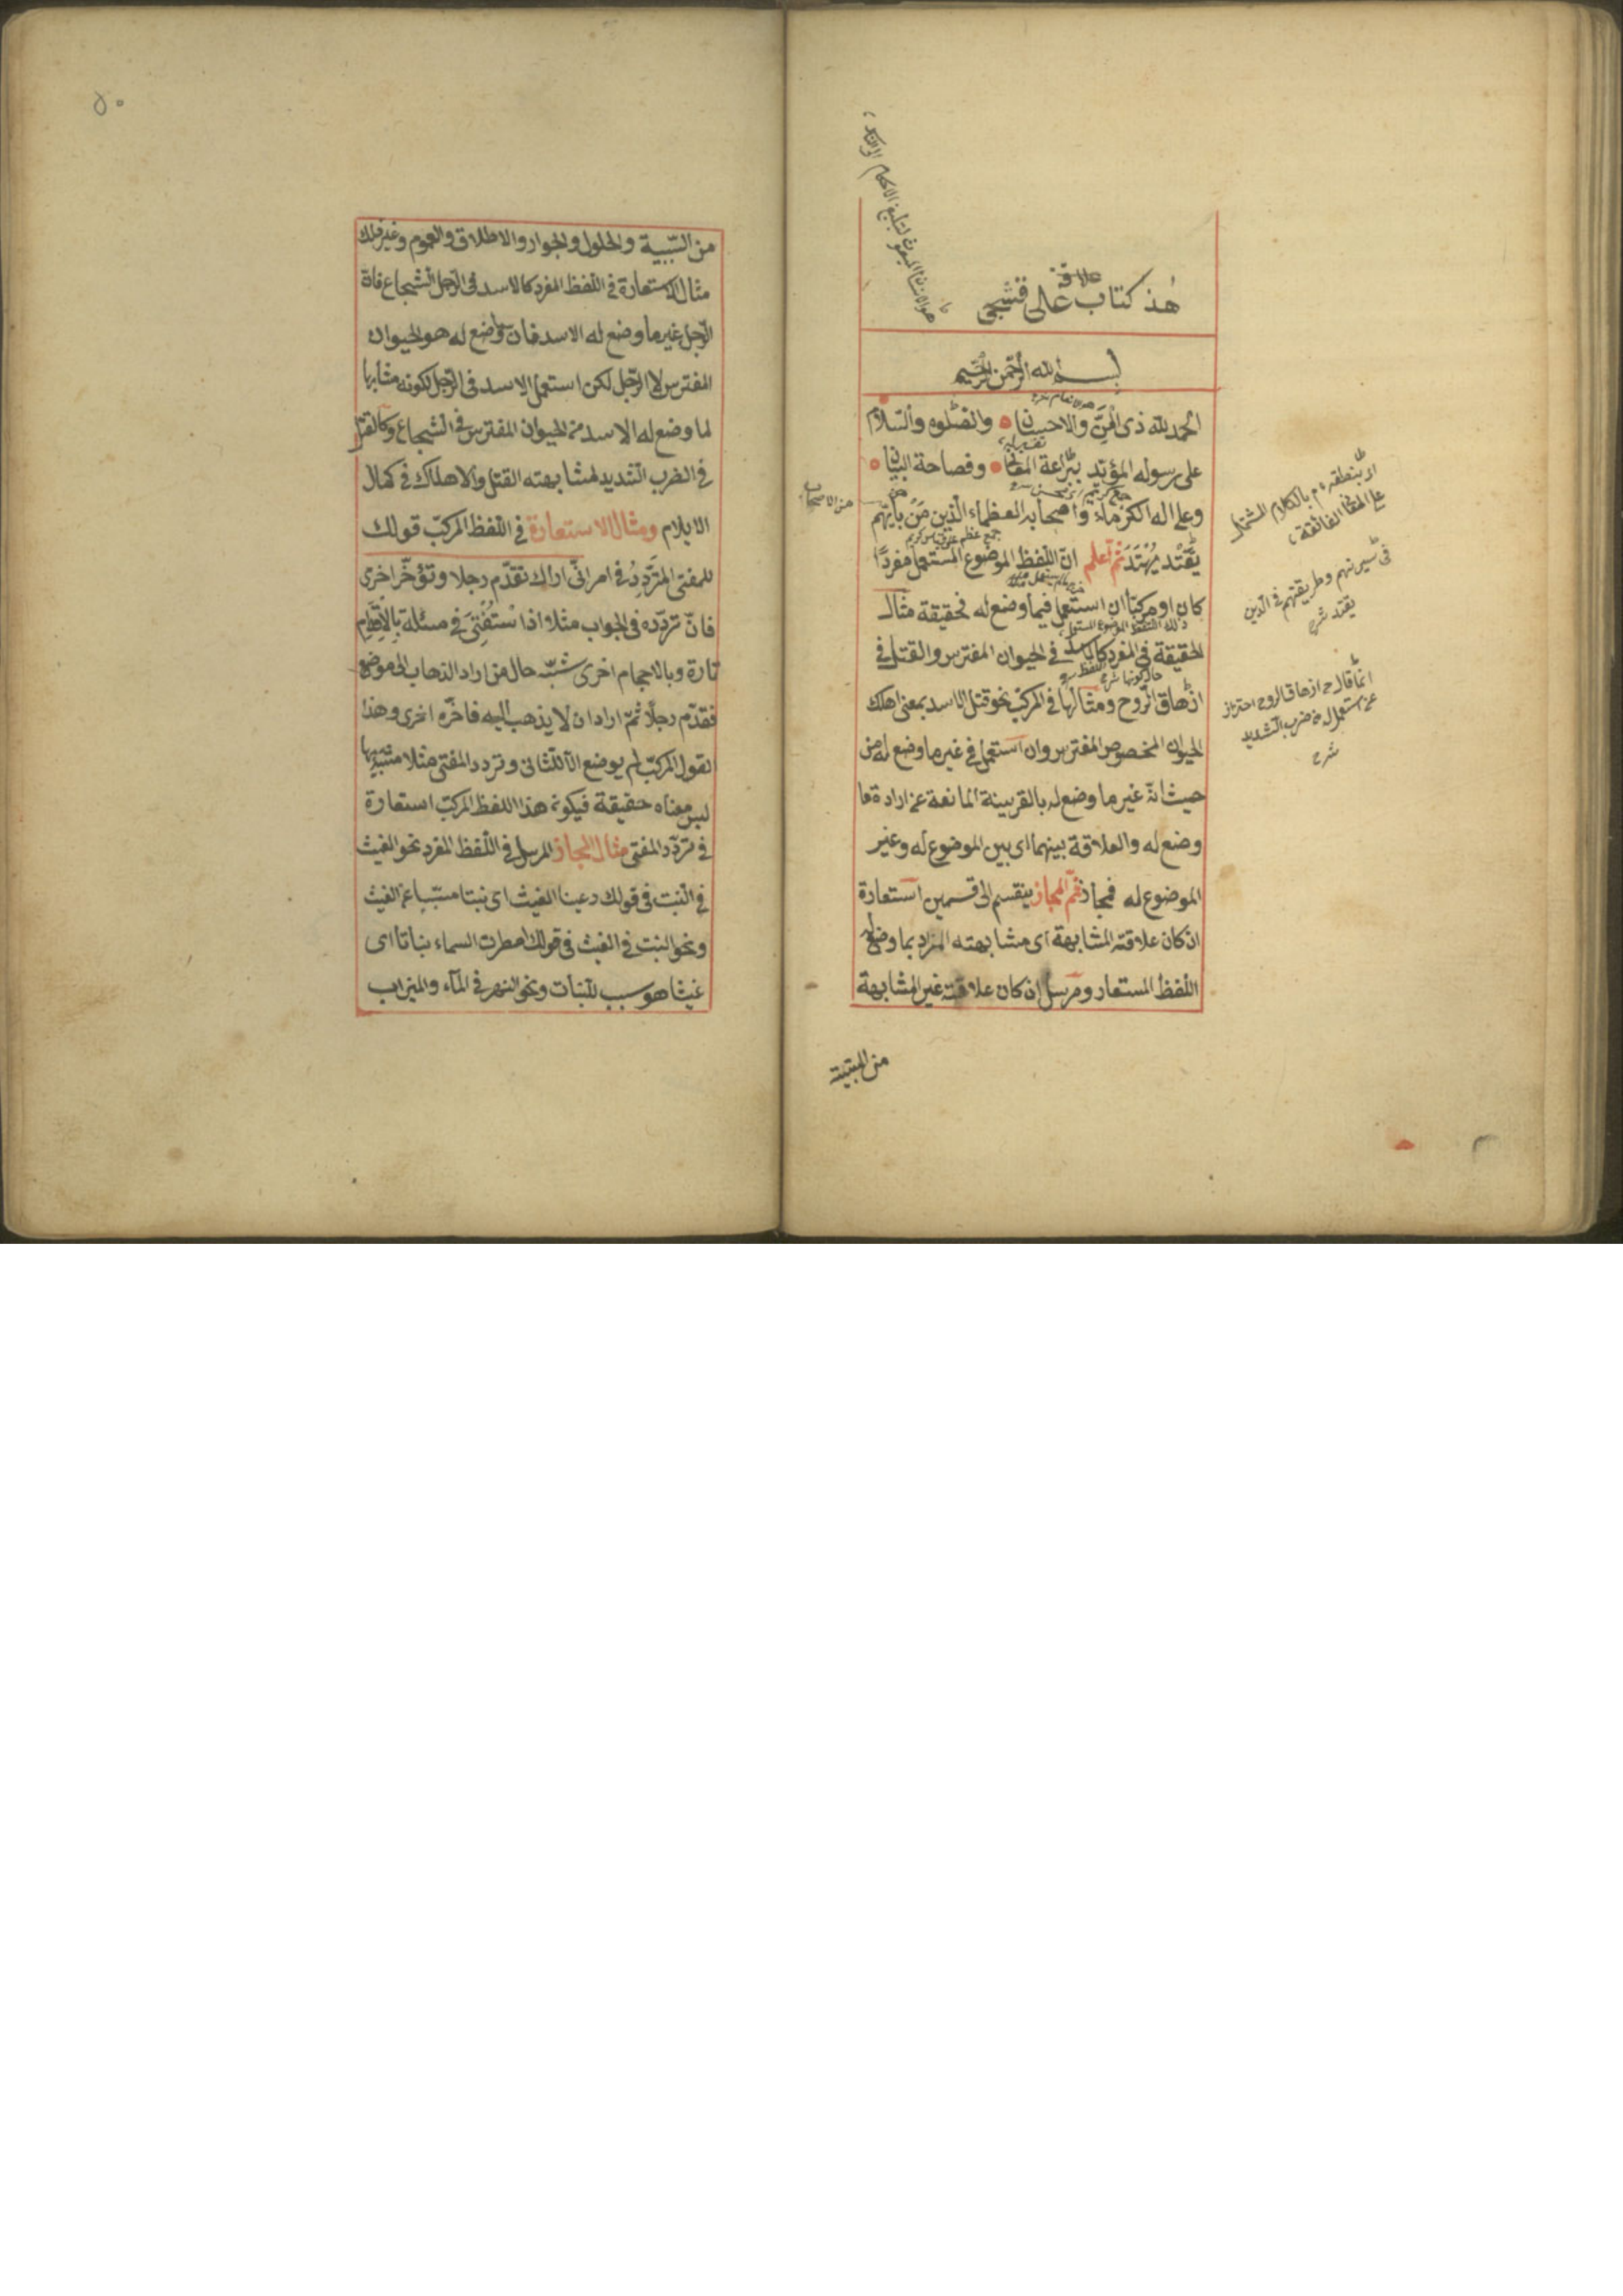 هذ كتاب علاقة على قشجى
بسم الله الرحمن الرحيم
الحمد لله ذى المن والاحسان والصلوه والسلام
على رسوله المؤيد ببراعة المعانى وفصاحة البيان
وعلى اله الكرماء واصحابه العظماء الذين من بايهم
يقتد يهتد ثم اعلم ان اللفظ الموضوع المستعمل مفردا
كان او مركبا ان استعمل فيما وضع له فحقيقة مثال
الحقيقة فى المفرد كالاسد فى الحيوان المفترس والقتل فى
ازهاق الروح ومثالها فى المركب نحو قتل الاسد بمعنى اهلك
الحيوان المخصوص المفترس وان استعمل فى غير ما وضع له من
حيث انه غير ما وضع له بالقرينة المانعة عن ارادة ما
وضع له والعلاقة بينهما اى بين الموضوع له وغير
الموضوع له فمجاز ثم المجاز ينقسم الى قسمين استعارة
ان كان علاقته المشابهة اى مشابهته المراد بما وضع له
اللفظ المستعار ومرسل ان كان علاقته غير المشابهة
من السببية
هو الانسان المبعوث لتبليغ الاحكام
من الاصحاب
بالكلام المشتمل
فى سيرتهم وطريقتهم فى الدين
يقتد شرح
انما قال ازهاق الروح احتراز
ضرب الشديد
شرح
٥٠
من السببية والحلول والجوار والاطلاق والعموم وغير ذلك
مثال الاستعارة فى اللفظ المفرد كالاسد فى الرجل الشجاع فان
الرجل غير ما وضع له الاسد فان ما وضع له هو الحيوان
المفترس لا الرجل لكن استعمل الاسد فى الرجل لكونه مشابها
لما وضع له الاسد من الحيوان المفترس فى الشجاع وكالقتل
فى الضرب الشديد لمشابهته القتل والاهلاك فى كمال
الايلام ومثال الاستعارة فى اللفظ المركب قولك
للمفتى المتردد فى امر انى اراك تقدم رجلا وتؤخر اخرى
فان تردده فى الجواب مثلا اذا استفتى فى مسئلة بالاقدام
تارة وبالاحجام اخرى شبه حال من اراد الذهاب الى موضع
فقدم رجلا ثم اراد ان لا يذهب اليه فاخره اخرى وهذا
القول المركب لم يوضع الا للثانى وتردد المفتى مثلا مشبه بها
ليس معناه حقيقة فيكون هذا اللفظ المركب استعارة
فى تردد المفتى مثال المجاز المرسل فى اللفظ المفرد نحو الغيث
فى النبت فى قولك رعينا الغيث اى نبتا مسببا عن الغيث
ونحو النبت فى الغيث فى قولك امطرت السماء نباتا اى
غيثا هو سبب للنبات ونحو النهر فى الماء والميزاب